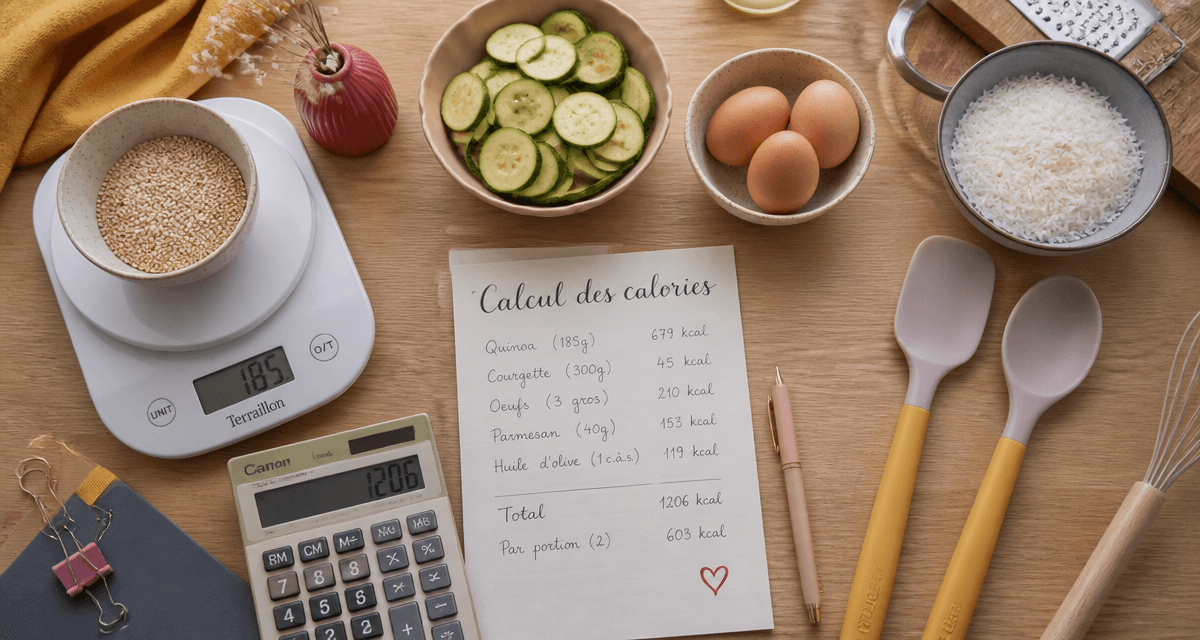 Calcul des calories
Quinoa (185g) 679 kcal
Courgette (300g) 45 kcal
Oeufs (3 gros) 210 kcal
Parmesan (40g) 153 kcal
Huile d'olive (1 c.à.s.) 119 kcal
Total 1206 kcal
Par portion (2) 603 kcal
185
UNIT
O/T
Terraillon
Canon
1206
RM CM M-
% 
7 8 8
4 5 6
2 2 +